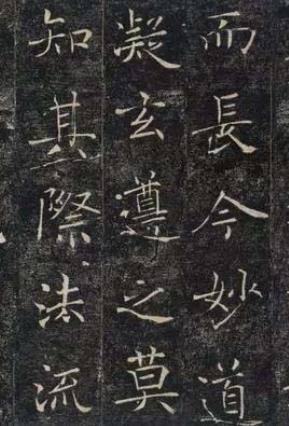 而長今妙道
凝玄遵之莫
知其際法流